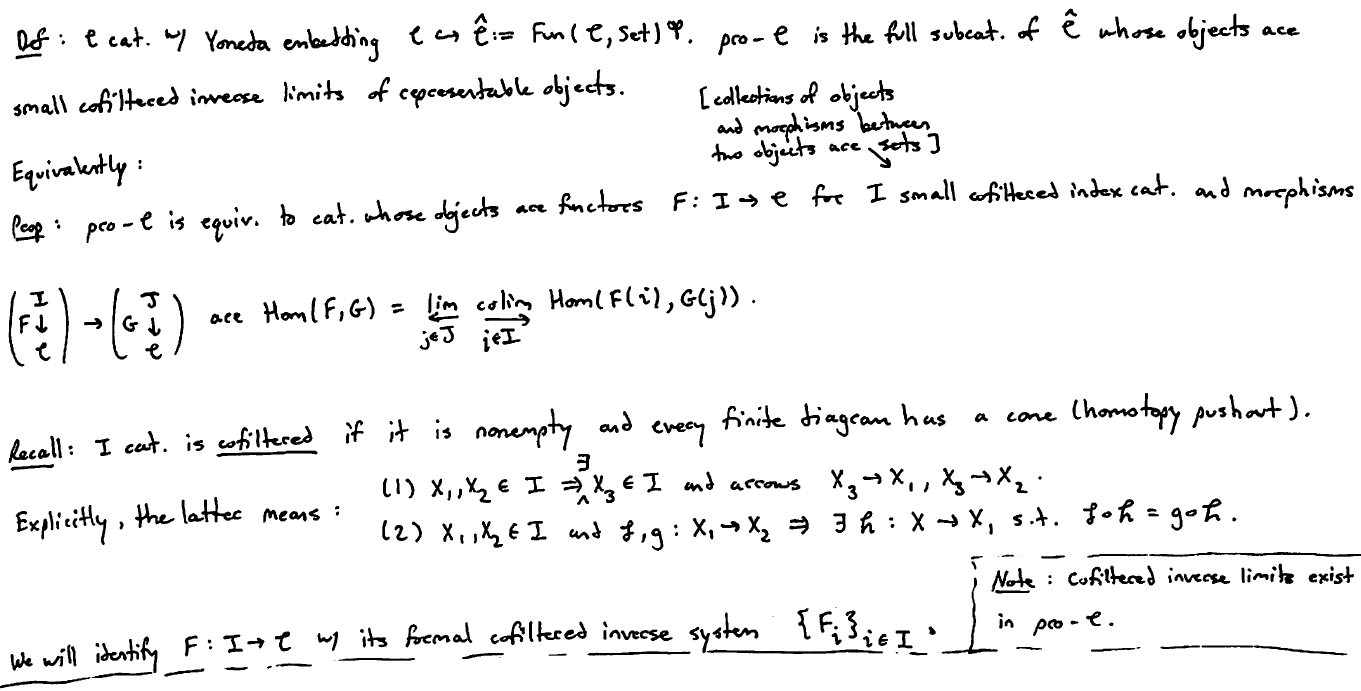 Def : C cat. w/ Yoneda embedding C ↪ Ĉ := Fun(C, Set)^op. pro-C is the full subcat. of Ĉ whose objects are
small cofiltered inverse limits of representable objects.
[collections of objects
and morphisms between
two objects are sets]
Equivalently :
Prop : pro-C is equiv. to cat. whose objects are functors F : I → C for I small cofiltered index cat. and morphisms
(I F↓ C) → (J G↓ C) are Hom(F,G) = lim_{j∈J} colim_{i∈I} Hom(F(i), G(j)).
Recall : I cat. is cofiltered if it is nonempty and every finite diagram has a cone (homotopy pushout).
Explicitly, the latter means :
(1) X₁, X₂ ∈ I ⇒ ∃ X₃ ∈ I and arrows X₃ → X₁, X₃ → X₂.
(2) X₁, X₂ ∈ I and f, g : X₁ → X₂ ⇒ ∃ h : X → X₁ s.t. f∘h = g∘h.
Note : Cofiltered inverse limits exist
in pro-C.
We will identify F : I → C w/ its formal cofiltered inverse system {F_i}_{i∈I}.